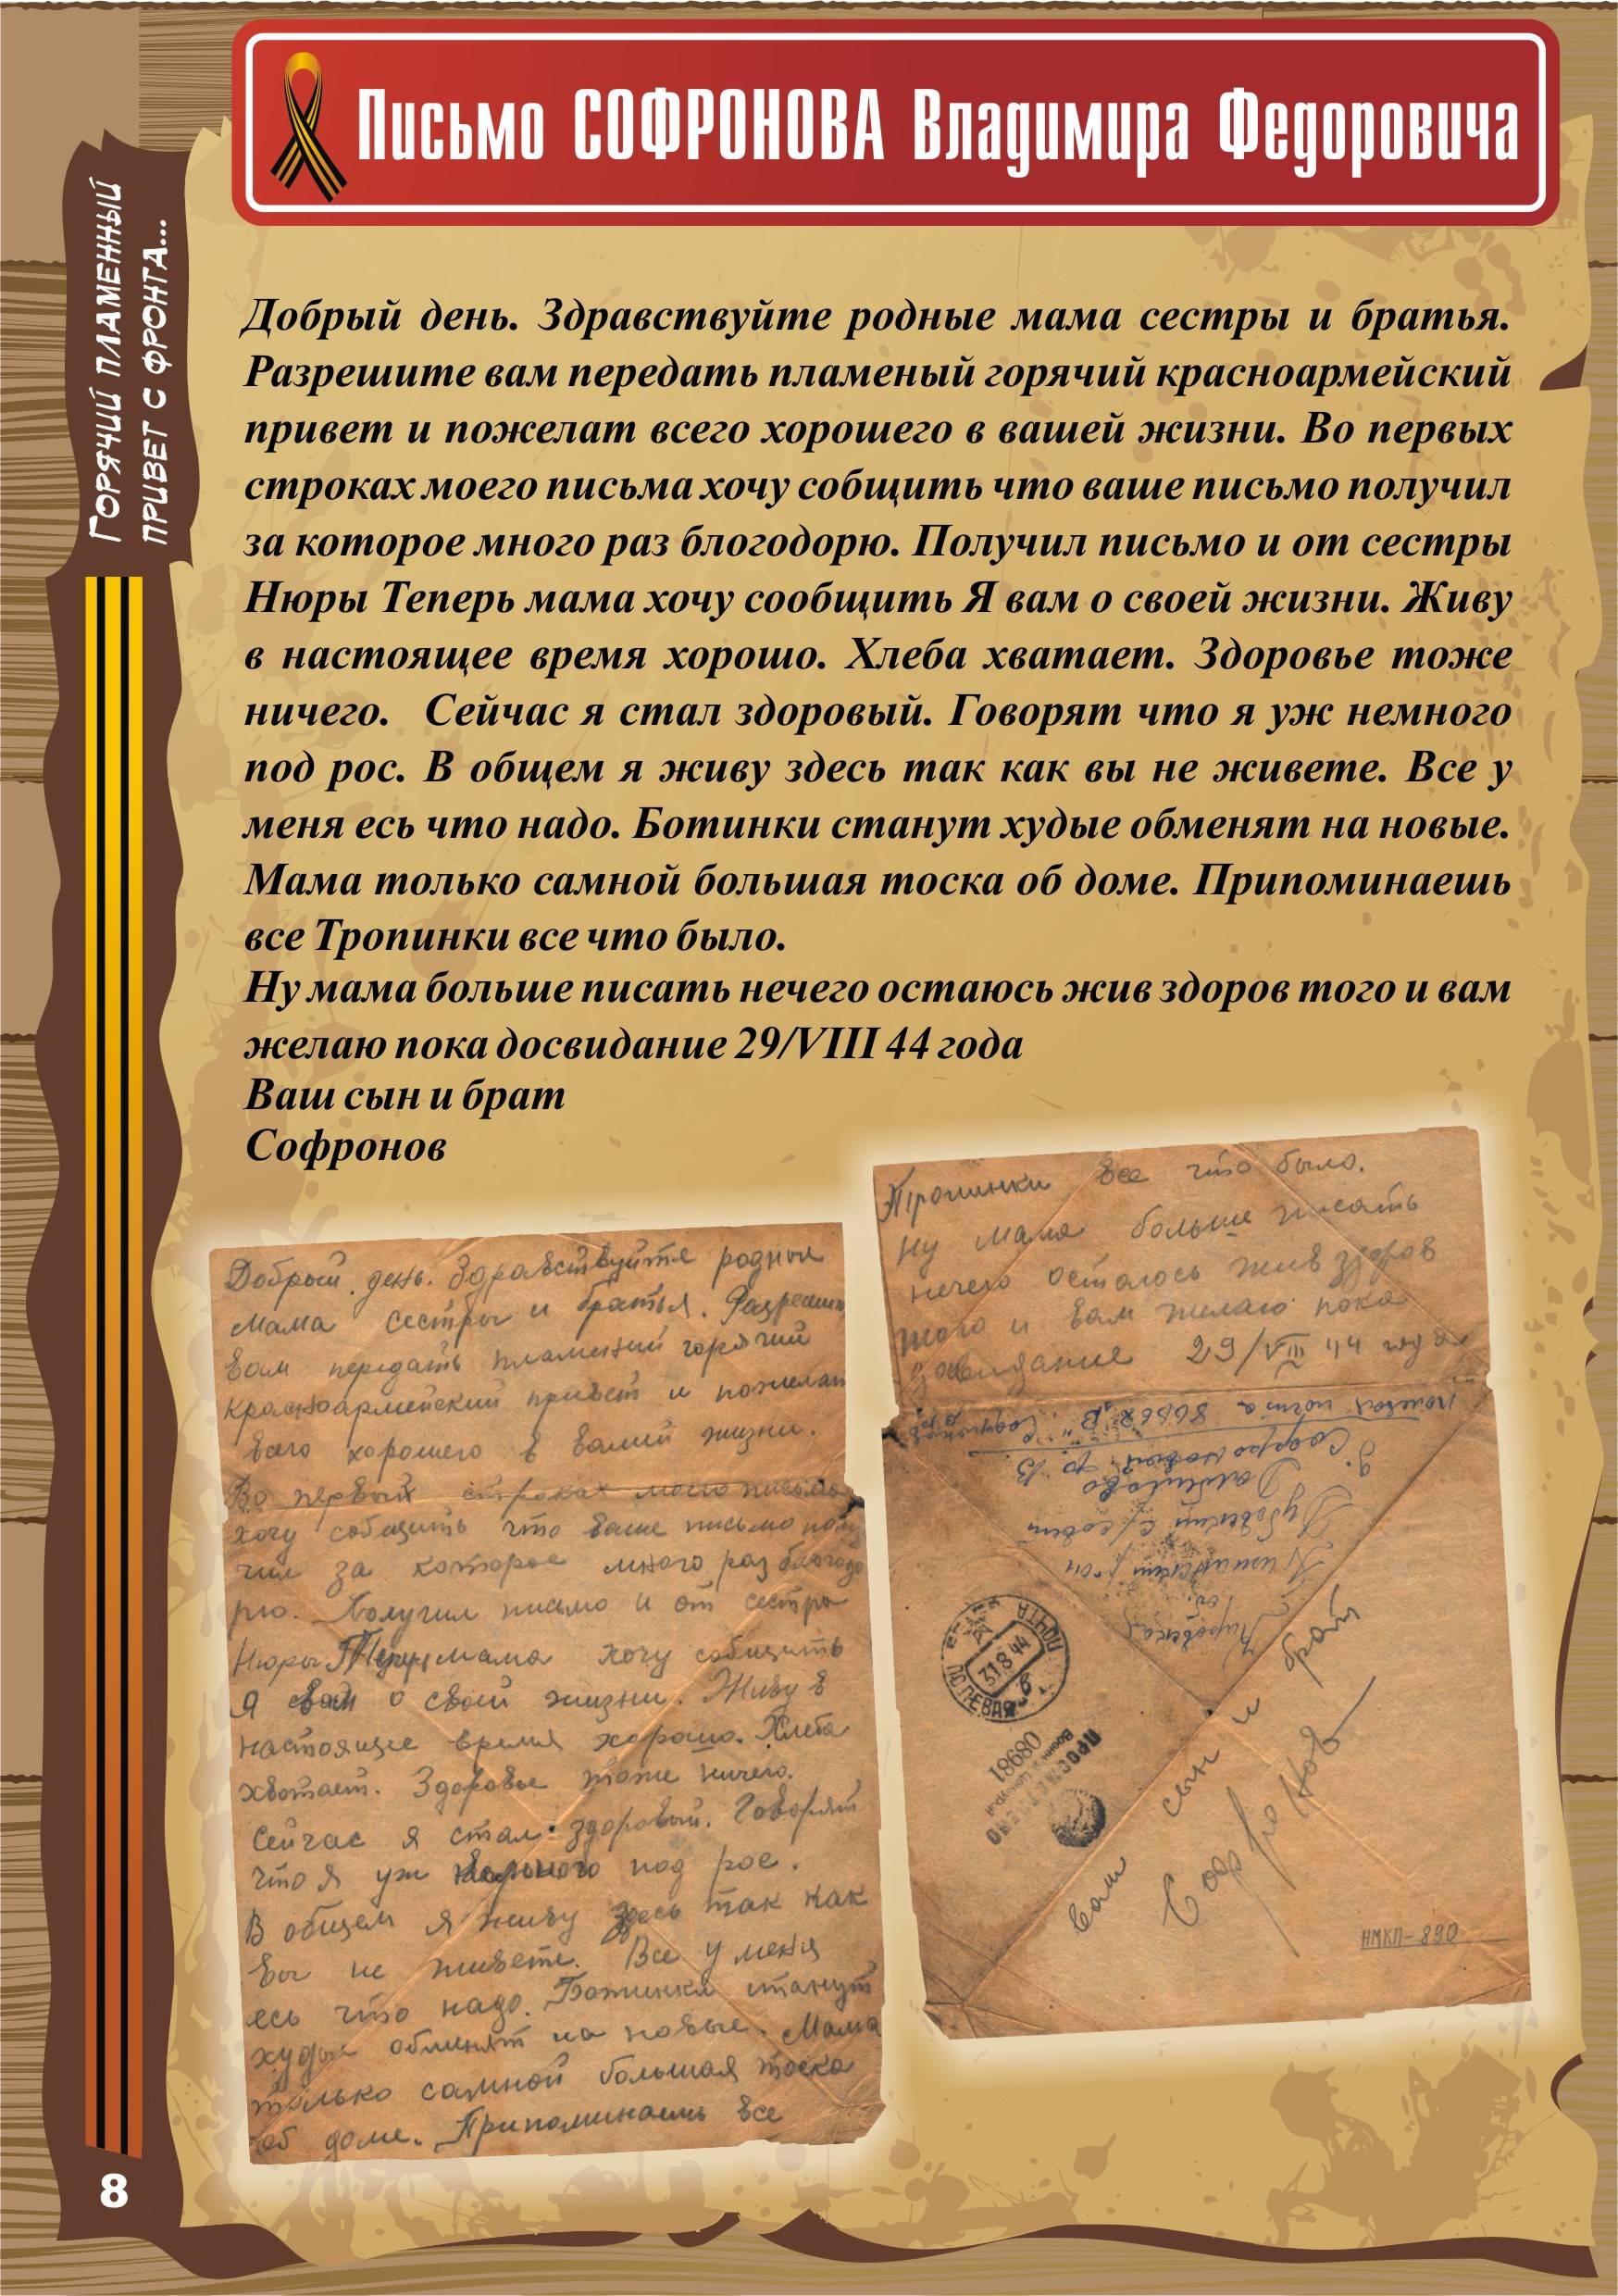 Письмо СОФРОНОВА Владимира Федоровича
Горячий пламенный
привет с фронта...
Добрый день. Здравствуйте родные мама сестры и братья.
Разрешите вам передать пламеный горячий красноармейский
привет и пожелат всего хорошего в вашей жизни. Во первых
строках моего письма хочу собщить что ваше письмо получил
за которое много раз блогодорю. Получил письмо и от сестры
Нюры Теперь мама хочу сообщить Я вам о своей жизни. Живу
в настоящее время хорошо. Хлеба хватает. Здоровье тоже
ничего. Сейчас я стал здоровый. Говорят что я уж немного
под рос. В общем я живу здесь так как вы не живете. Все у
меня есь что надо. Ботинки станут худые обменят на новые.
Мама только самной большая тоска об доме. Припоминаешь
все Тропинки все что было.
Ну мама больше писать нечего остаюсь жив здоров того и вам
желаю пока досвидание 29/VIII 44 года
Ваш сын и брат
Софронов
Добрый день. Здравствуйте родныи
мама сестры и братья. Разрешите
вам передать пламеный горячий
красноармейский привет и пожелат
всего хорошего в вашей жизни.
Во первых строках моего письма
хочу собщить что ваше письмо полу
чил за которое много раз блогодо
рю. Получил письмо и от сестры
Нюры Теперь мама хочу собщить
Я вам о своей жизни. Живу в
настоящее время хорошо. Хлеба
хватает. Здоровье тоже ничего.
Сейчас я стал здоровый. Говорят
что я уж немного под рос.
В общем я живу здесь так как
вы не живете. Все у меня
есь что надо. Ботинки станут
худые обменят на новые. Мама
только самной большая тоска
об доме. Припоминаешь все
Тропинки все что было.
Ну мама больше писать
нечего остаюсь жив здоров
того и вам желаю пока
досвидание 29/VIII 44 года
Кировская об.
с/совет
Софроновой
полевая почта Софронов
ПОЧТА
31 8 44
ПОЛЕВАЯ
ПРОСМОТРЕНО
Военной Цензурой
08981
Ваш сын и брат
Софронов
НМКП-890
8